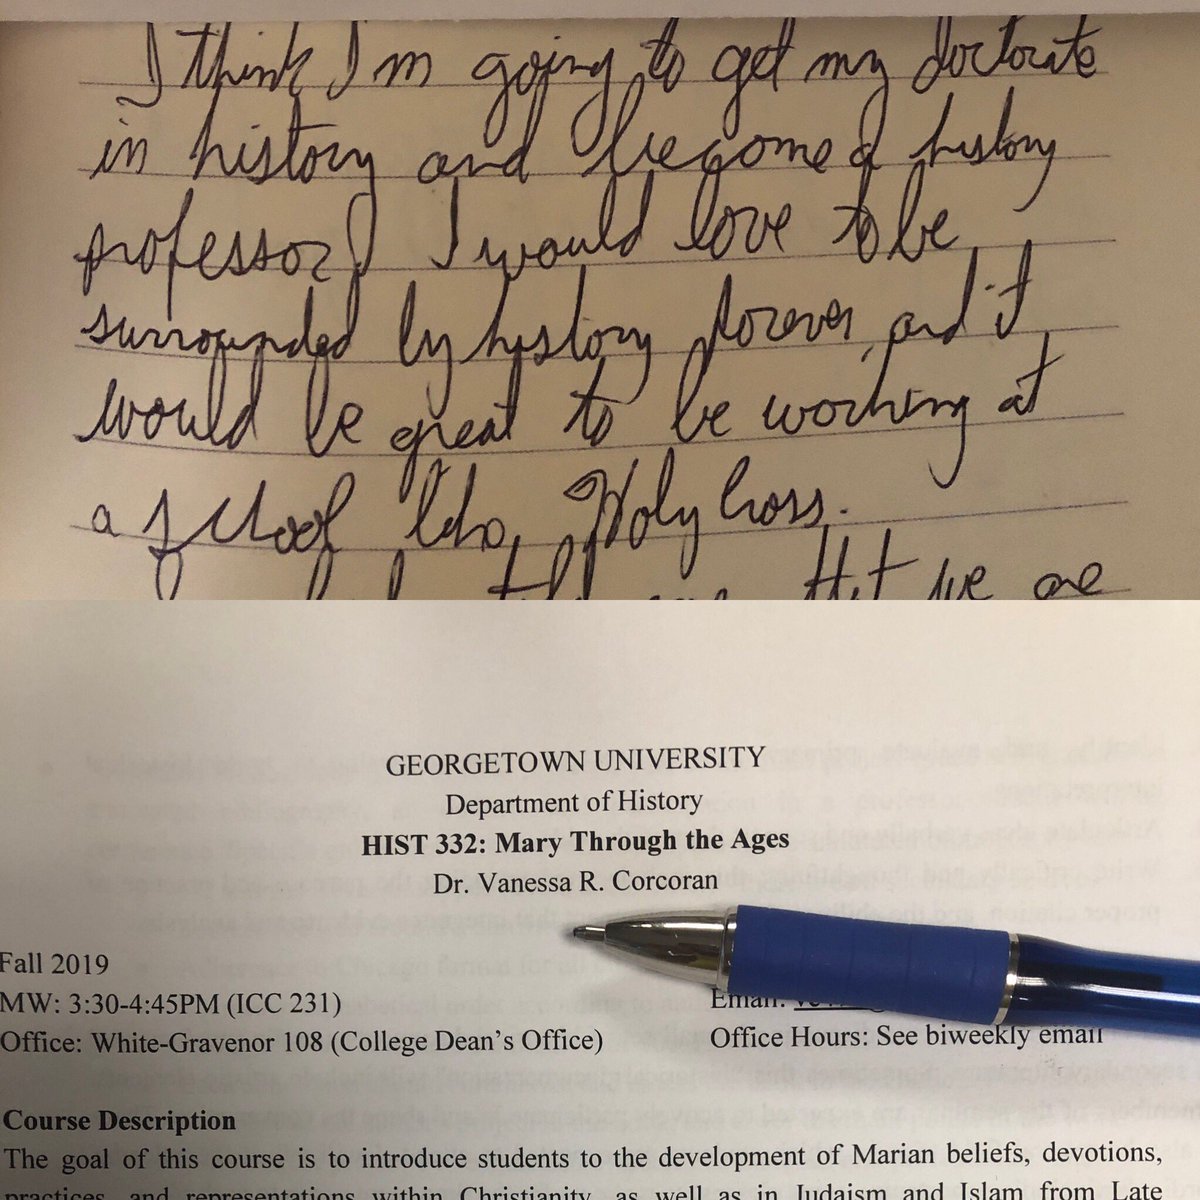 I think I'm going to get my doctorate
in history and become a history
professor! I would love to be
surrounded by history forever, and it
would be great to be working at
a school like Holy Cross.
we are
GEORGETOWN UNIVERSITY
Department of History
HIST 332: Mary Through the Ages
Dr. Vanessa R. Corcoran
Fall 2019
MW: 3:30-4:45PM (ICC 231)
Email:
Office: White-Gravenor 108 (College Dean's Office)
Office Hours: See biweekly email
Course Description
The goal of this course is to introduce students to the development of Marian beliefs, devotions,
practices, and representations within Christianity, as well as in Judaism and Islam from Late